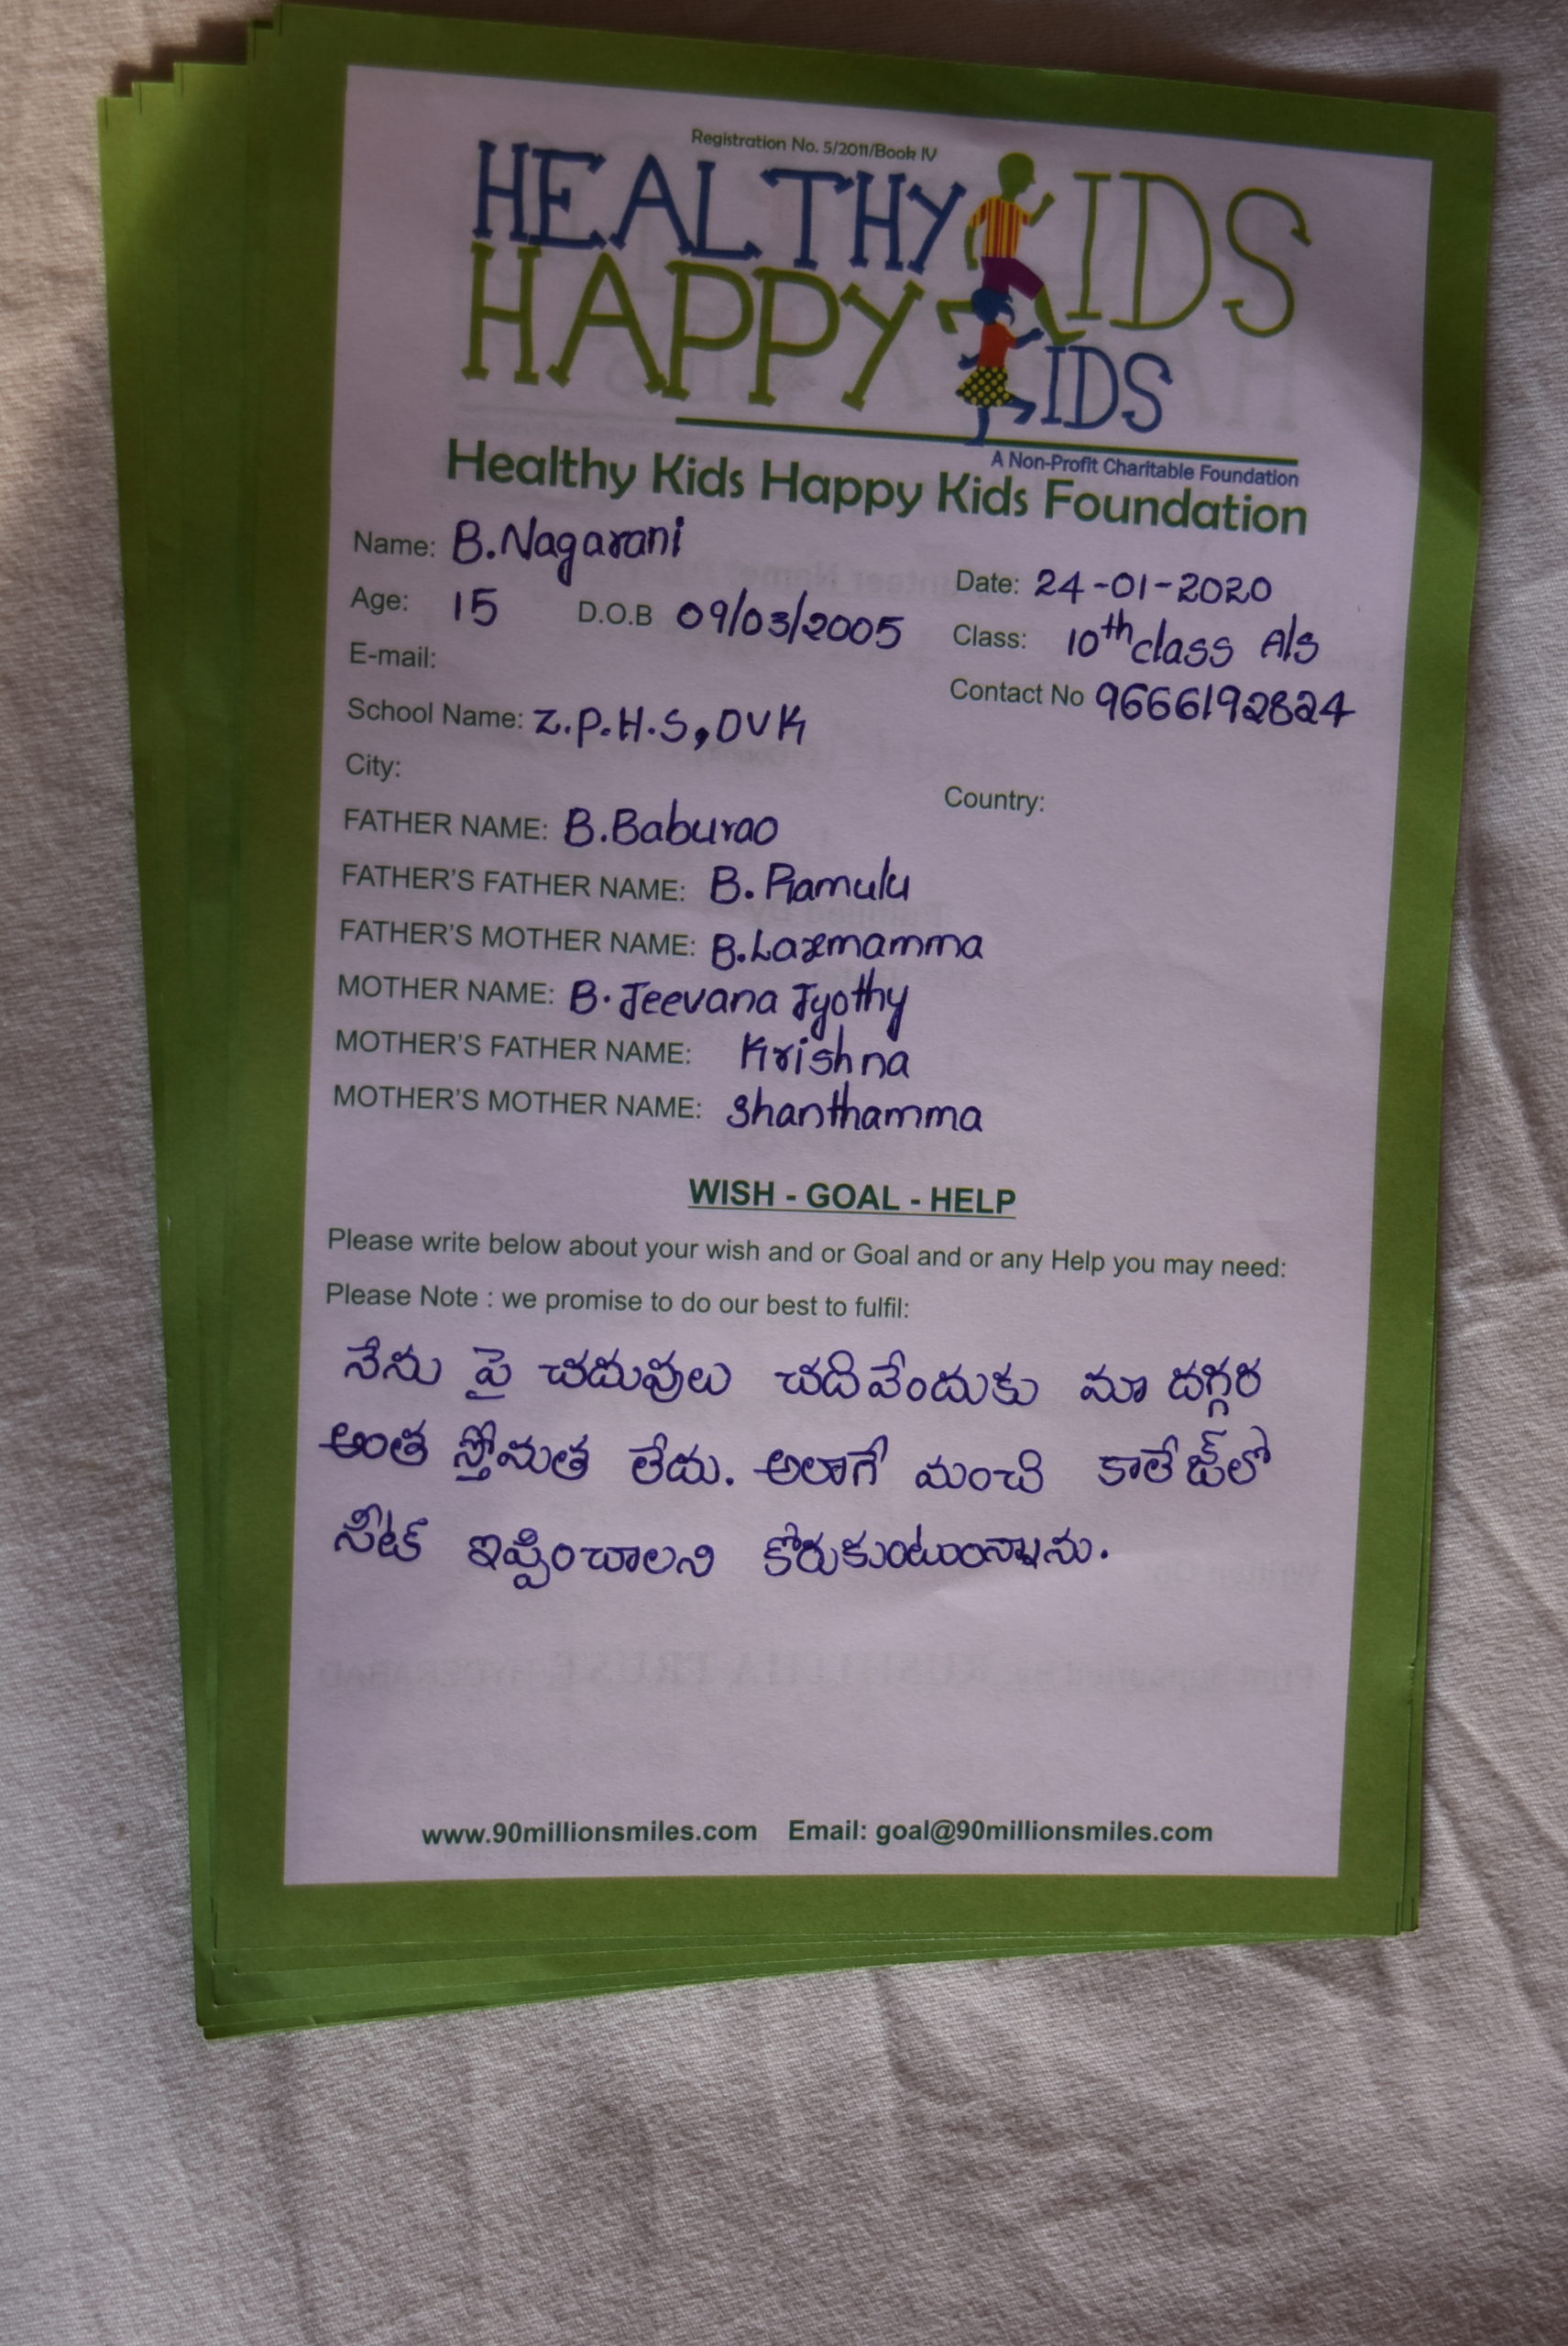 Registration No. 5/2011/Book IV
HEALTHY KIDS
HAPPY KIDS
A Non-Profit Charitable Foundation
Healthy Kids Happy Kids Foundation
Name: B.Nagarani
Date: 24-01-2020
Age: 15 D.O.B 09/03/2005
Class: 10th class A/s
E-mail:
Contact No 9666192824
School Name: Z.P.H.S, DVK
City:
Country:
FATHER NAME: B.Baburao
FATHER'S FATHER NAME: B. Ramulu
FATHER'S MOTHER NAME: B.Laxmamma
MOTHER NAME: B. Jeevana Jyothy
MOTHER'S FATHER NAME: Krishna
MOTHER'S MOTHER NAME: Shanthamma
WISH - GOAL - HELP
Please write below about your wish and or Goal and or any Help you may need:
Please Note : we promise to do our best to fulfil:
నేను పై చదువులు చదివేందుకు మా దగ్గర
అంత స్తోమత లేదు. అలాగే మంచి కాలేజ్‌లో
సీట్ ఇప్పించాలని కోరుకుంటుంన్నాను.
www.90millionsmiles.com Email: goal@90millionsmiles.com